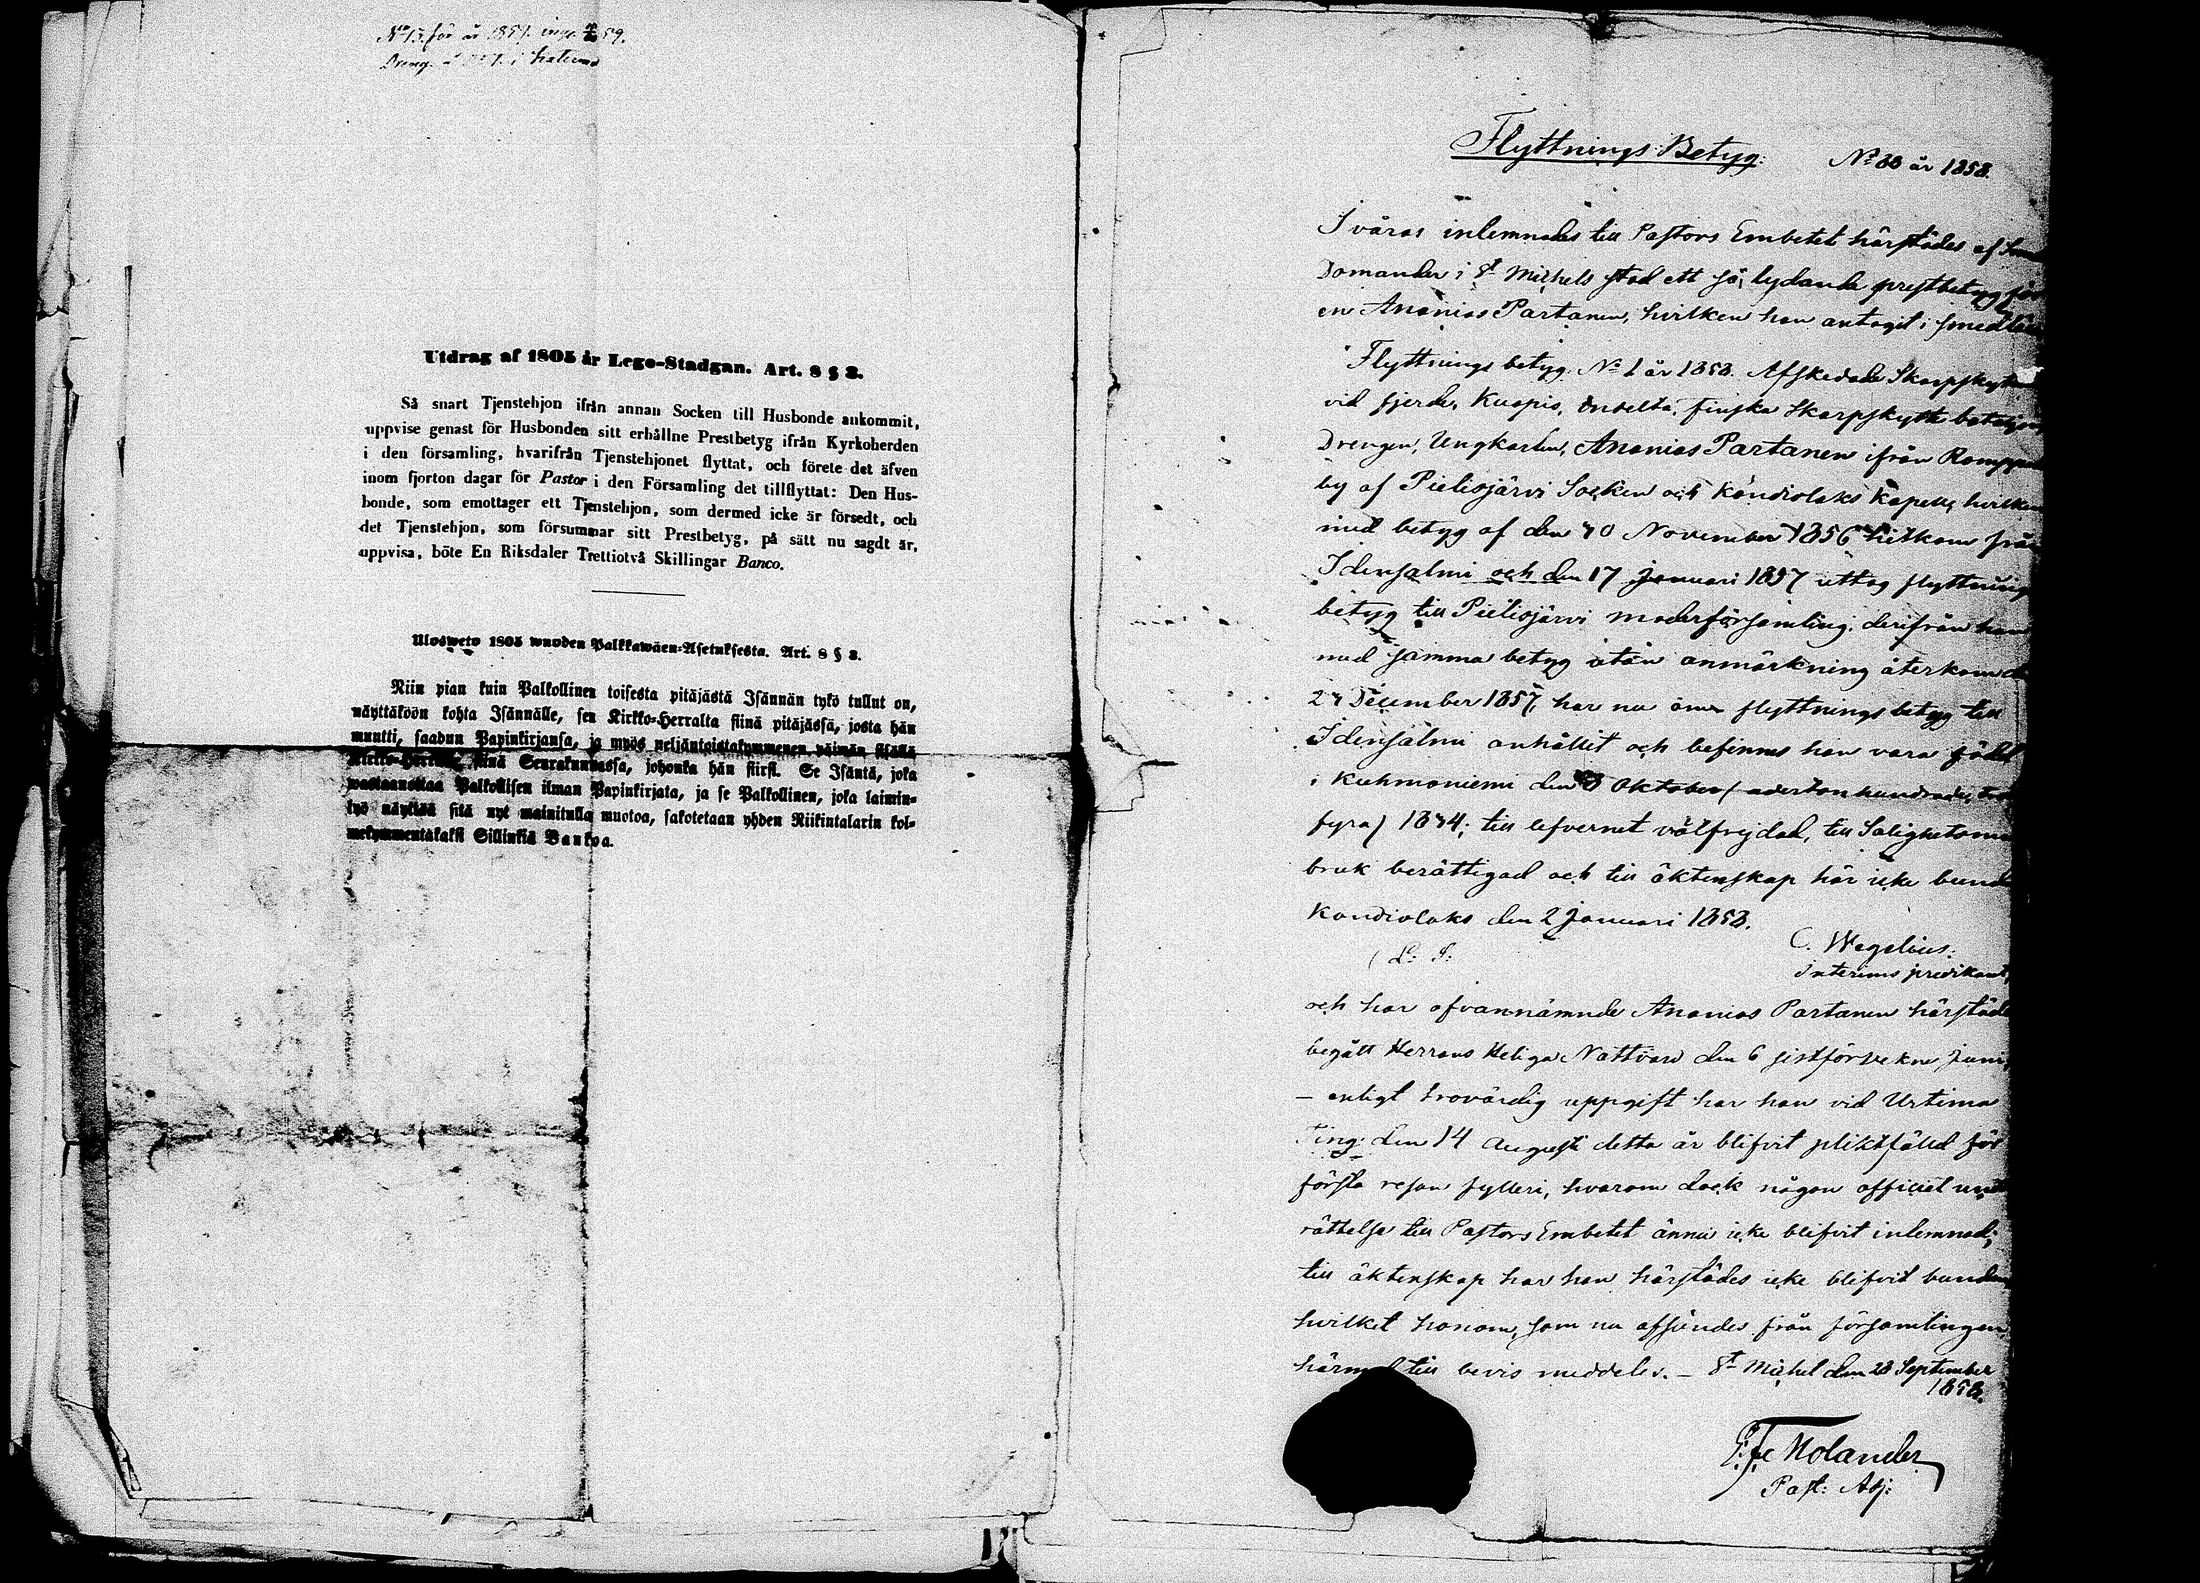 No 13. för år 1857. 59.
Utdrag af 1805 år Lego-Stadgan. Art. 8 § 3.
Så snart Tjenstehjon ifrån annan Socken till Husbonde ankommit,
uppvise genast för Husbonden sitt erhållne Prestbetyg ifrån Kyrkoherden
i den församling, hvarifrån Tjenstehjonet flyttat, och förete det äfven
inom fjorton dagar för Pastor i den Församling det tillflyttat: Den Hus-
bonde, som emottager ett Tjenstehjon, som dermed icke är försedt, och
det Tjenstehjon, som försummar sitt Prestbetyg, på sätt nu sagdt är,
uppvisa, böte En Riksdaler Trettiotvå Skillingar Banco.
Ulosweto 1805 wuoden Palkkawäen-Asetuksesta. Art. 8 § 3.
Niin pian kuin Palkollinen toisesta pitäjästä Isännän tykö tullut on,
näyttäköön kohta Isännälle, sen Kirkko-Herralta siinä pitäjässä, josta hän
muutti, saadun Papinkirjansa, ja myös neljäntoistakymmenen päiwän sisällä
Kirkko-Herralle siinä Seurakunnassa, johonka hän siirsi. Se Isäntä, joka
wastaanottaa Palkollisen ilman Papinkirjata, ja se Palkollinen, joka laimin-
lyö näyttää sitä nyt mainitulla muotoa, sakotetaan yhden Riikintalarin kol-
mekymmentäkaksi Sillinkiä Bankoa.
Flyttnings Betyg: No 88 år 1858.
I våras inlemnades till Pastors Embetet härstädes af
Domander i St Michels stad ett så lydande prestbetyg för
en Ananias Partanen, hvilken han antagit i
"Flyttnings betyg. No 1 år 1858. Afskedade
vid fjerde, Kuopio, indelta, finska Skarpskytte
Drengen, Ungkarlen, Ananias Partanen ifrån
by af Pielisjärvi Socken och Kondiolaks Kapell, hvilken
med betyg af den 30 November 1856 hitkom från
Idensalmi och den 17 Januari 1857 uttog flyttnings
betyg till Pielisjärvi moderförsamling, derifrån han
med samma betyg utan anmärkning återkom
27 December 1857, har nu åter flyttnings betyg till
Idensalmi anhållit och befinnes han vara född
i Kuhmoniemi den 8 Oktober (adertonhundrade
fyra) 1834; till lefvernet välfrejdad, till Salighetsme
bruk berättigad och till äktenskap här icke
Kondiolaks den 2 Januari 1858.
C. Wegelius.
(L. S.
Interims predikant,
och har ofvannämnde Ananias Partanen härstädes
begått Herrans Heliga Nattvard den 6 sistförvekne Juni,
— enligt trovärdig uppgift har han vid Urtima
Ting den 14 Augusti detta år blifvit pliktfälld för
första resan fylleri, hvarom dock någon officiel
rättelse till Pastors Embetet ännu icke blifvit inlemnad;
till äktenskap har han härstädes icke blifvit bunden
hvilket honom, som nu afsändes från församlingen
till bevis meddeles. — St Michel den 28 September
1858.
Molander
Past: Adj: